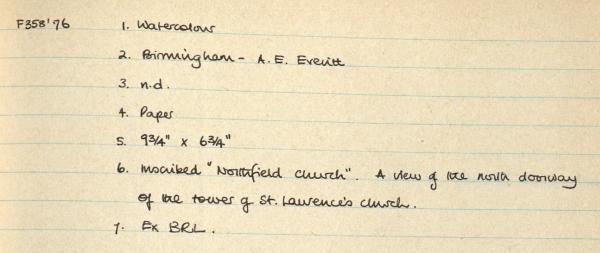 F358'76 1. Watercolour
2. Birmingham - A. E. Everitt
3. n.d.
4. Paper
5. 9¾" x 6¾"
6. Inscribed "Northfield church". A view of the north doorway
of the tower of St. Laurence's church.
7. Ex BRL.